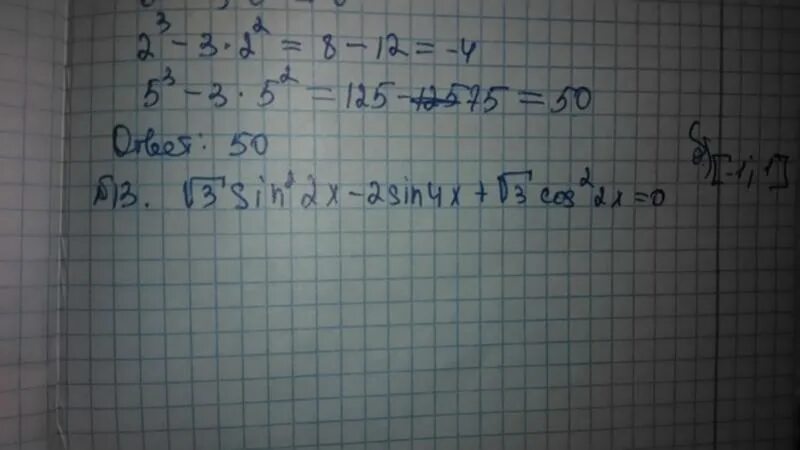 2³ - 3 · 2² = 8 - 12 = -4
5³ - 3 · 5² = 125 - 75 = 50
Ответ: 50
13. √3 sin² 2x - 2sin4x + √3 cos² 2x = 0
б) [-1; 1]